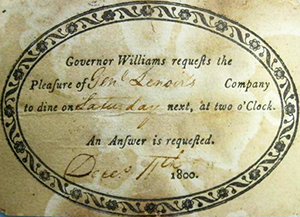 Governor Williams requests the
Pleasure of Genl Lenoir's Company
to dine on Saturday next, at two o'Clock.
An Answer is requested.
Decr 11th 1800.